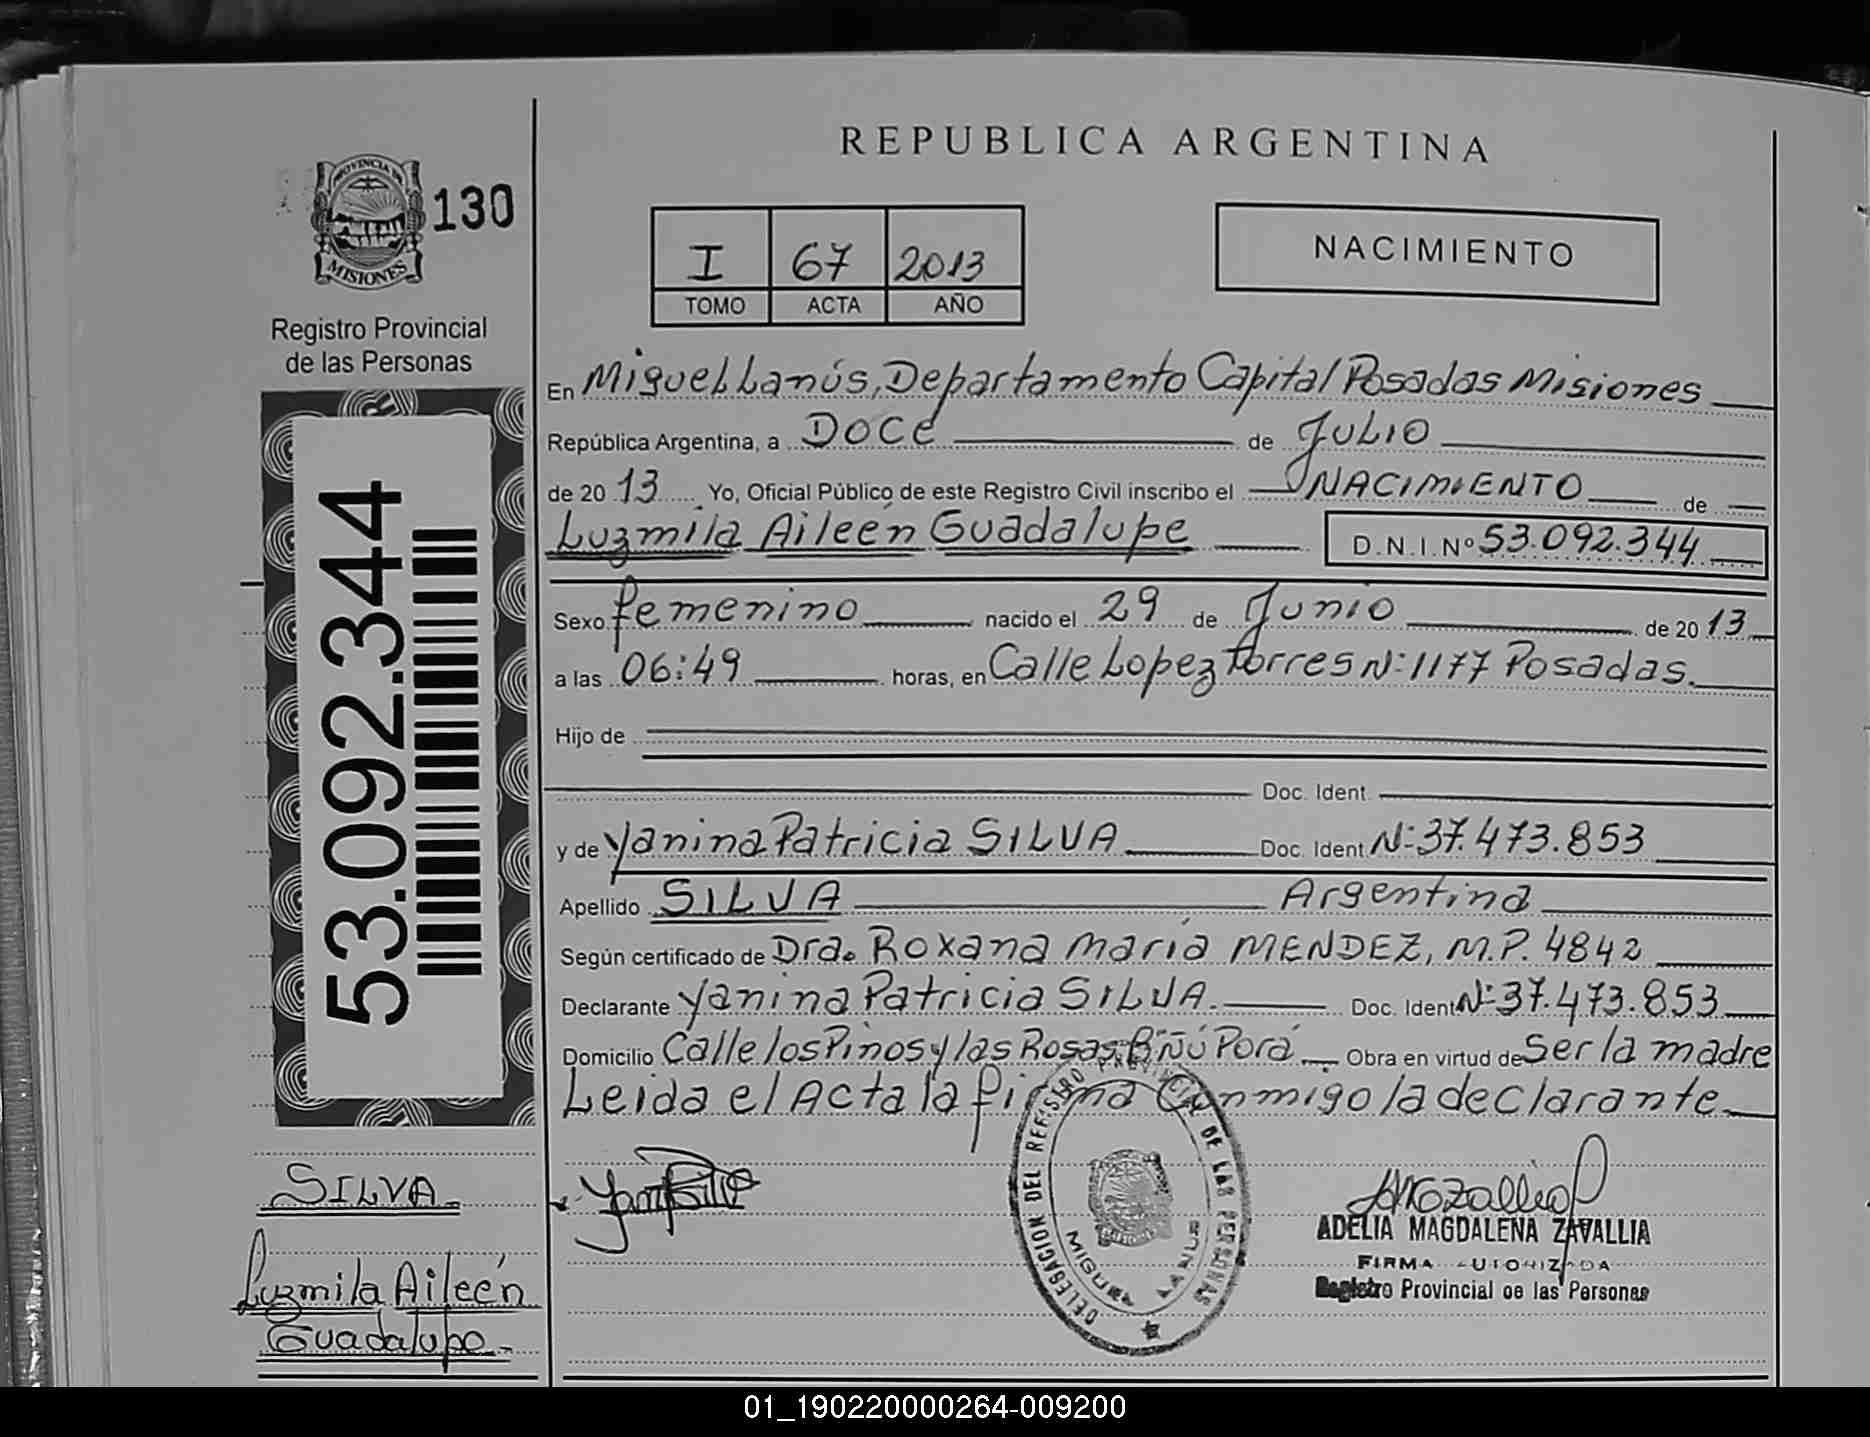 REPUBLICA ARGENTINA
PROVINCIA DE
MISIONES
130
Registro Provincial
de las Personas
I 67 2013
TOMO ACTA AÑO
NACIMIENTO
En Miguel Lanús, Departamento Capital Posadas Misiones
República Argentina, a Doce de Julio
de 20 13 Yo, Oficial Público de este Registro Civil inscribo el NACIMIENTO de
Luzmila Aileén Guadalupe D.N.I.Nº 53.092.344
Sexo femenino nacido el 29 de Junio de 20 13
a las 06:49 horas, en Calle Lopez torres N: 1177 Posadas.
Hijo de
Doc. Ident.
y de Yanina Patricia SILVA Doc. Ident N: 37.473.853
Apellido SILVA Argentina
Según certificado de Dra. Roxana María MENDEZ, M.P. 4842
Declarante Yanina Patricia SILVA. Doc. Ident N: 37.473.853
Domicilio Calle los Pinos y las Rosas B Ñú Porá Obra en virtud de Ser la madre
Leida el Acta la firma Conmigo la declarante
53.092.344
SILVA
Luzmila Aileén
Guadalupe
DELEGACION DEL REGISTRO PROVINCIAL DE LAS PERSONAS
MIGUEL LANUS
ADELIA MAGDALENA ZAVALLIA
FIRMA AUTORIZADA
Registro Provincial de las Personas
01_190220000264-009200